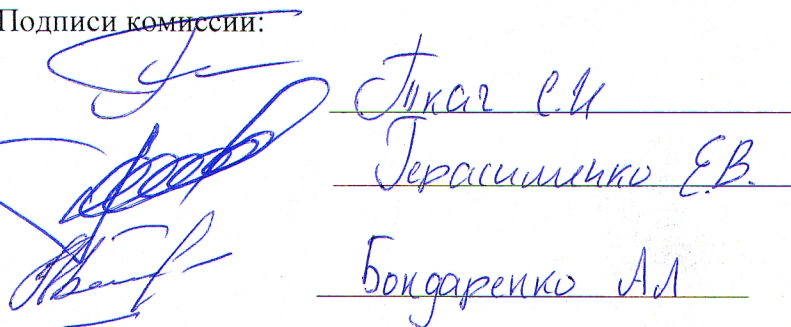 Подписи комиссии:
Ткач С.И
Герасименко Е.В.
Бондаренко АЛ